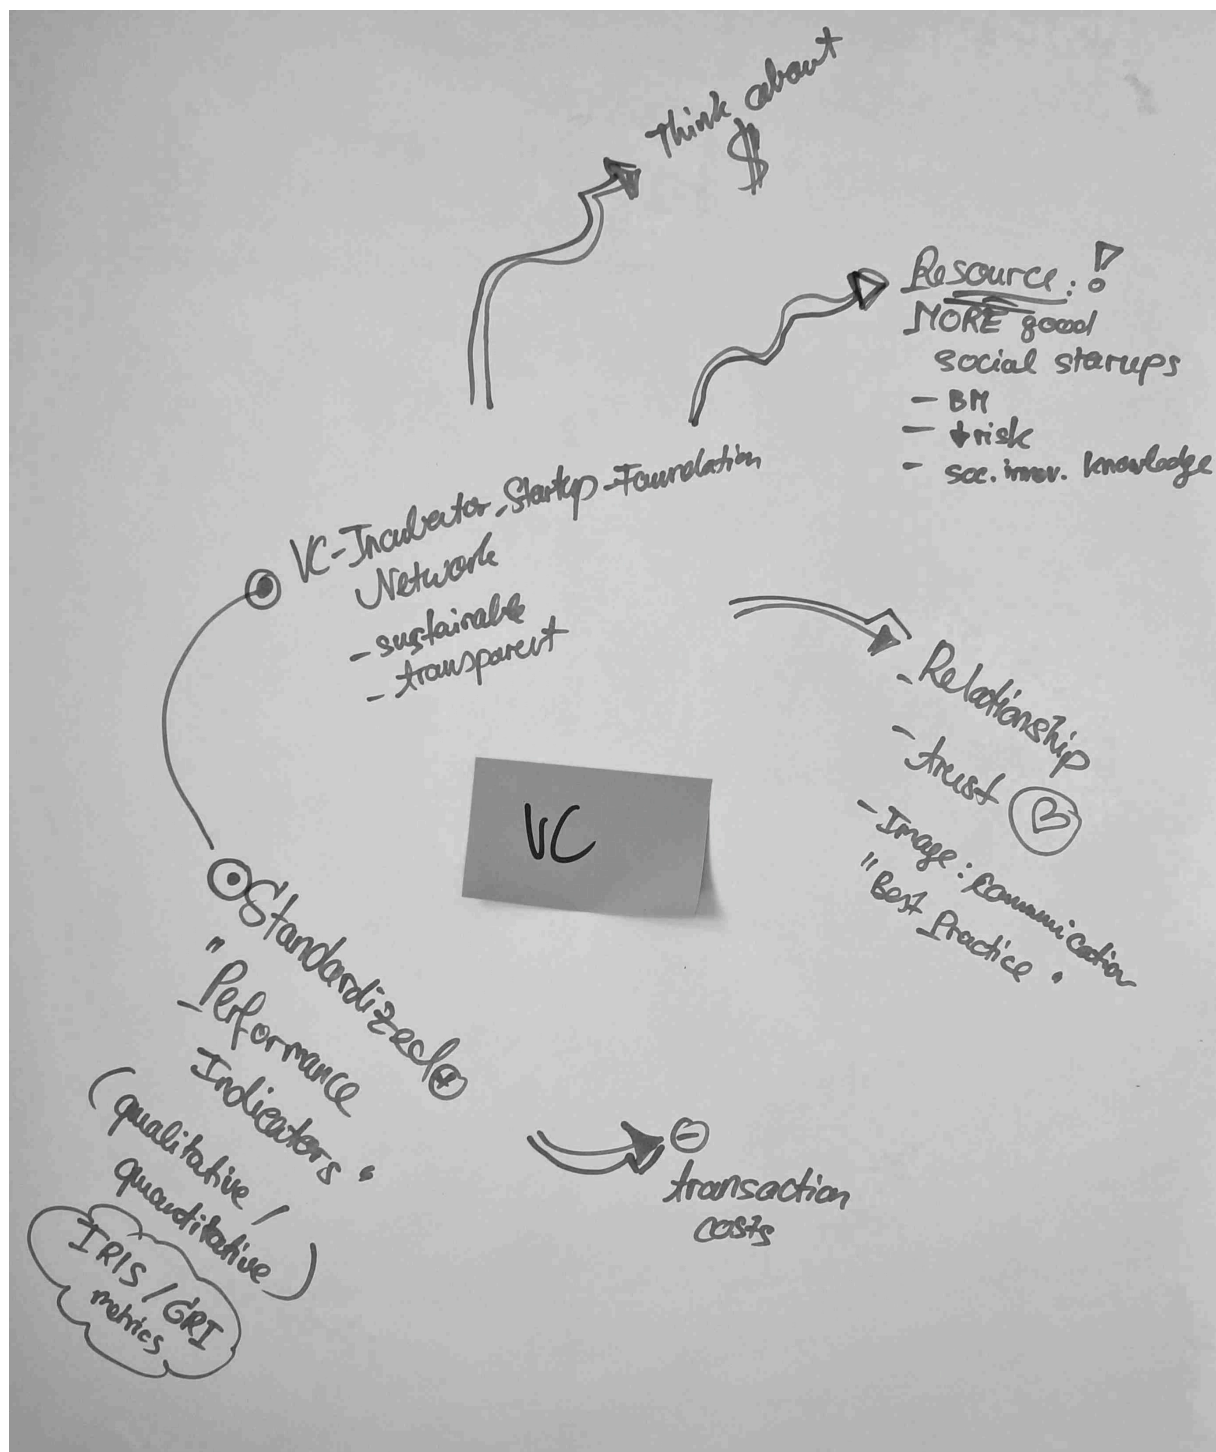 Think about
$
Resource: !
MORE good
social starups
- BM
- ↓risk
- soc. innov. knowledge
VC-Incubator-Startup-Foundation
Network
- sustainable
- transparent
- Relationship
- trust
- Image: communication
"Best Practice"
VC
Standardized +
"Performance
Indicators"
(qualitative /
quantitative)
IRIS / GRI
metrics
-
transaction
costs